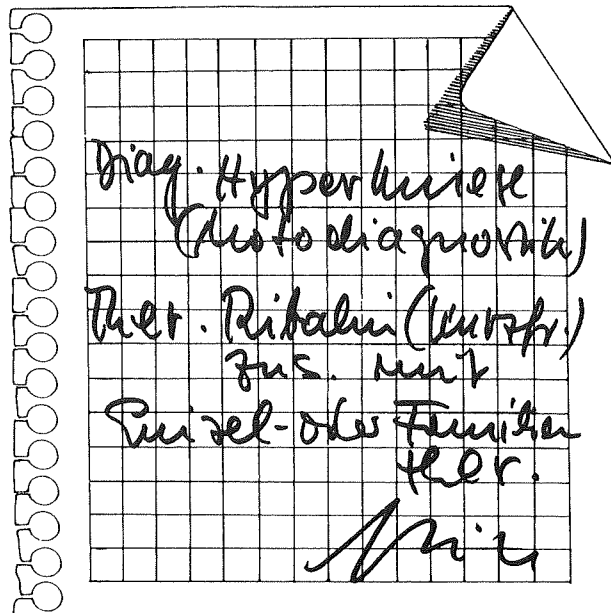 Diag. Hyperkinese
(Motodiagnostik)
Ther. Ritalin (kurzfr.)
zus. mit
Einzel- oder Familien
ther.